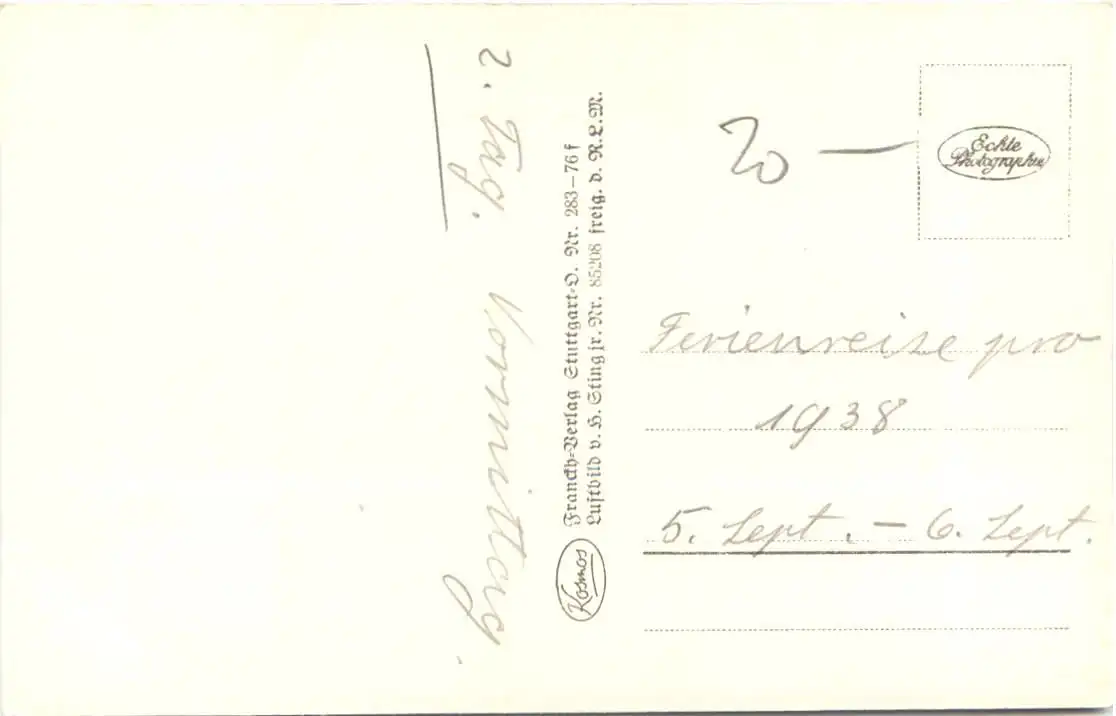 2. Tag.
Vormittag.
Franckh-Verlag Stuttgart-O. Nr. 283–76 f
Luftbild v. H. Sting jr. Nr. 85208 freig. d. R.L.M.
Kosmos
20 —
Echte
Photographie
Ferienreise pro
1938
5. Sept. – 6. Sept.